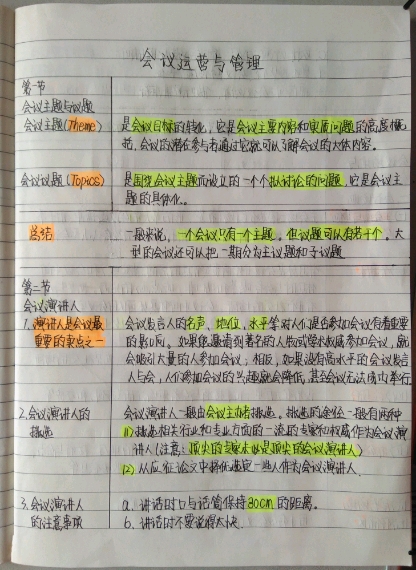 会议运营与管理
第一节
会议主题与议题
会议主题(Theme) 是会议目标的转化,它是会议主要内容和实质问题的高度概
括,会议的潜在参与者通过它就可以了解会议的大体内容。
会议议题(Topics) 是围绕会议主题而设立的一个个拟讨论的问题,它是会议主
题的具体化。
总结 一般来说,一个会议只有一个主题,但议题可以有若干个。大
型的会议还可以把一期分为主议题和子议题
第二节
会议演讲人
1.演讲人是会议最 会议发言人的名声、地位、水平等对人们是否参加会议有着重要
重要的卖点之一 的影响。如果能邀请到著名的人物或学术权威参加会议,就
会吸引大量的人参加会议;相反,如果没有高水平的会议发言
人与会,人们参加会议的兴趣就会降低,甚至会议无法成功举行
2.会议演讲人的 会议演讲人一般由会议主办者挑选,挑选的途径一般有两种
挑选 (1)挑选相关行业和专业方面的一流的专家和权威作为会议演
讲人(注意:顶尖的专家未必是顶尖的会议演讲人)
(2)从应征论文中择优选定一些人作为会议演讲人
3.会议演讲人 a.讲话时口与话筒保持30cm的距离。
的注意事项 b.讲话时不要说得太快